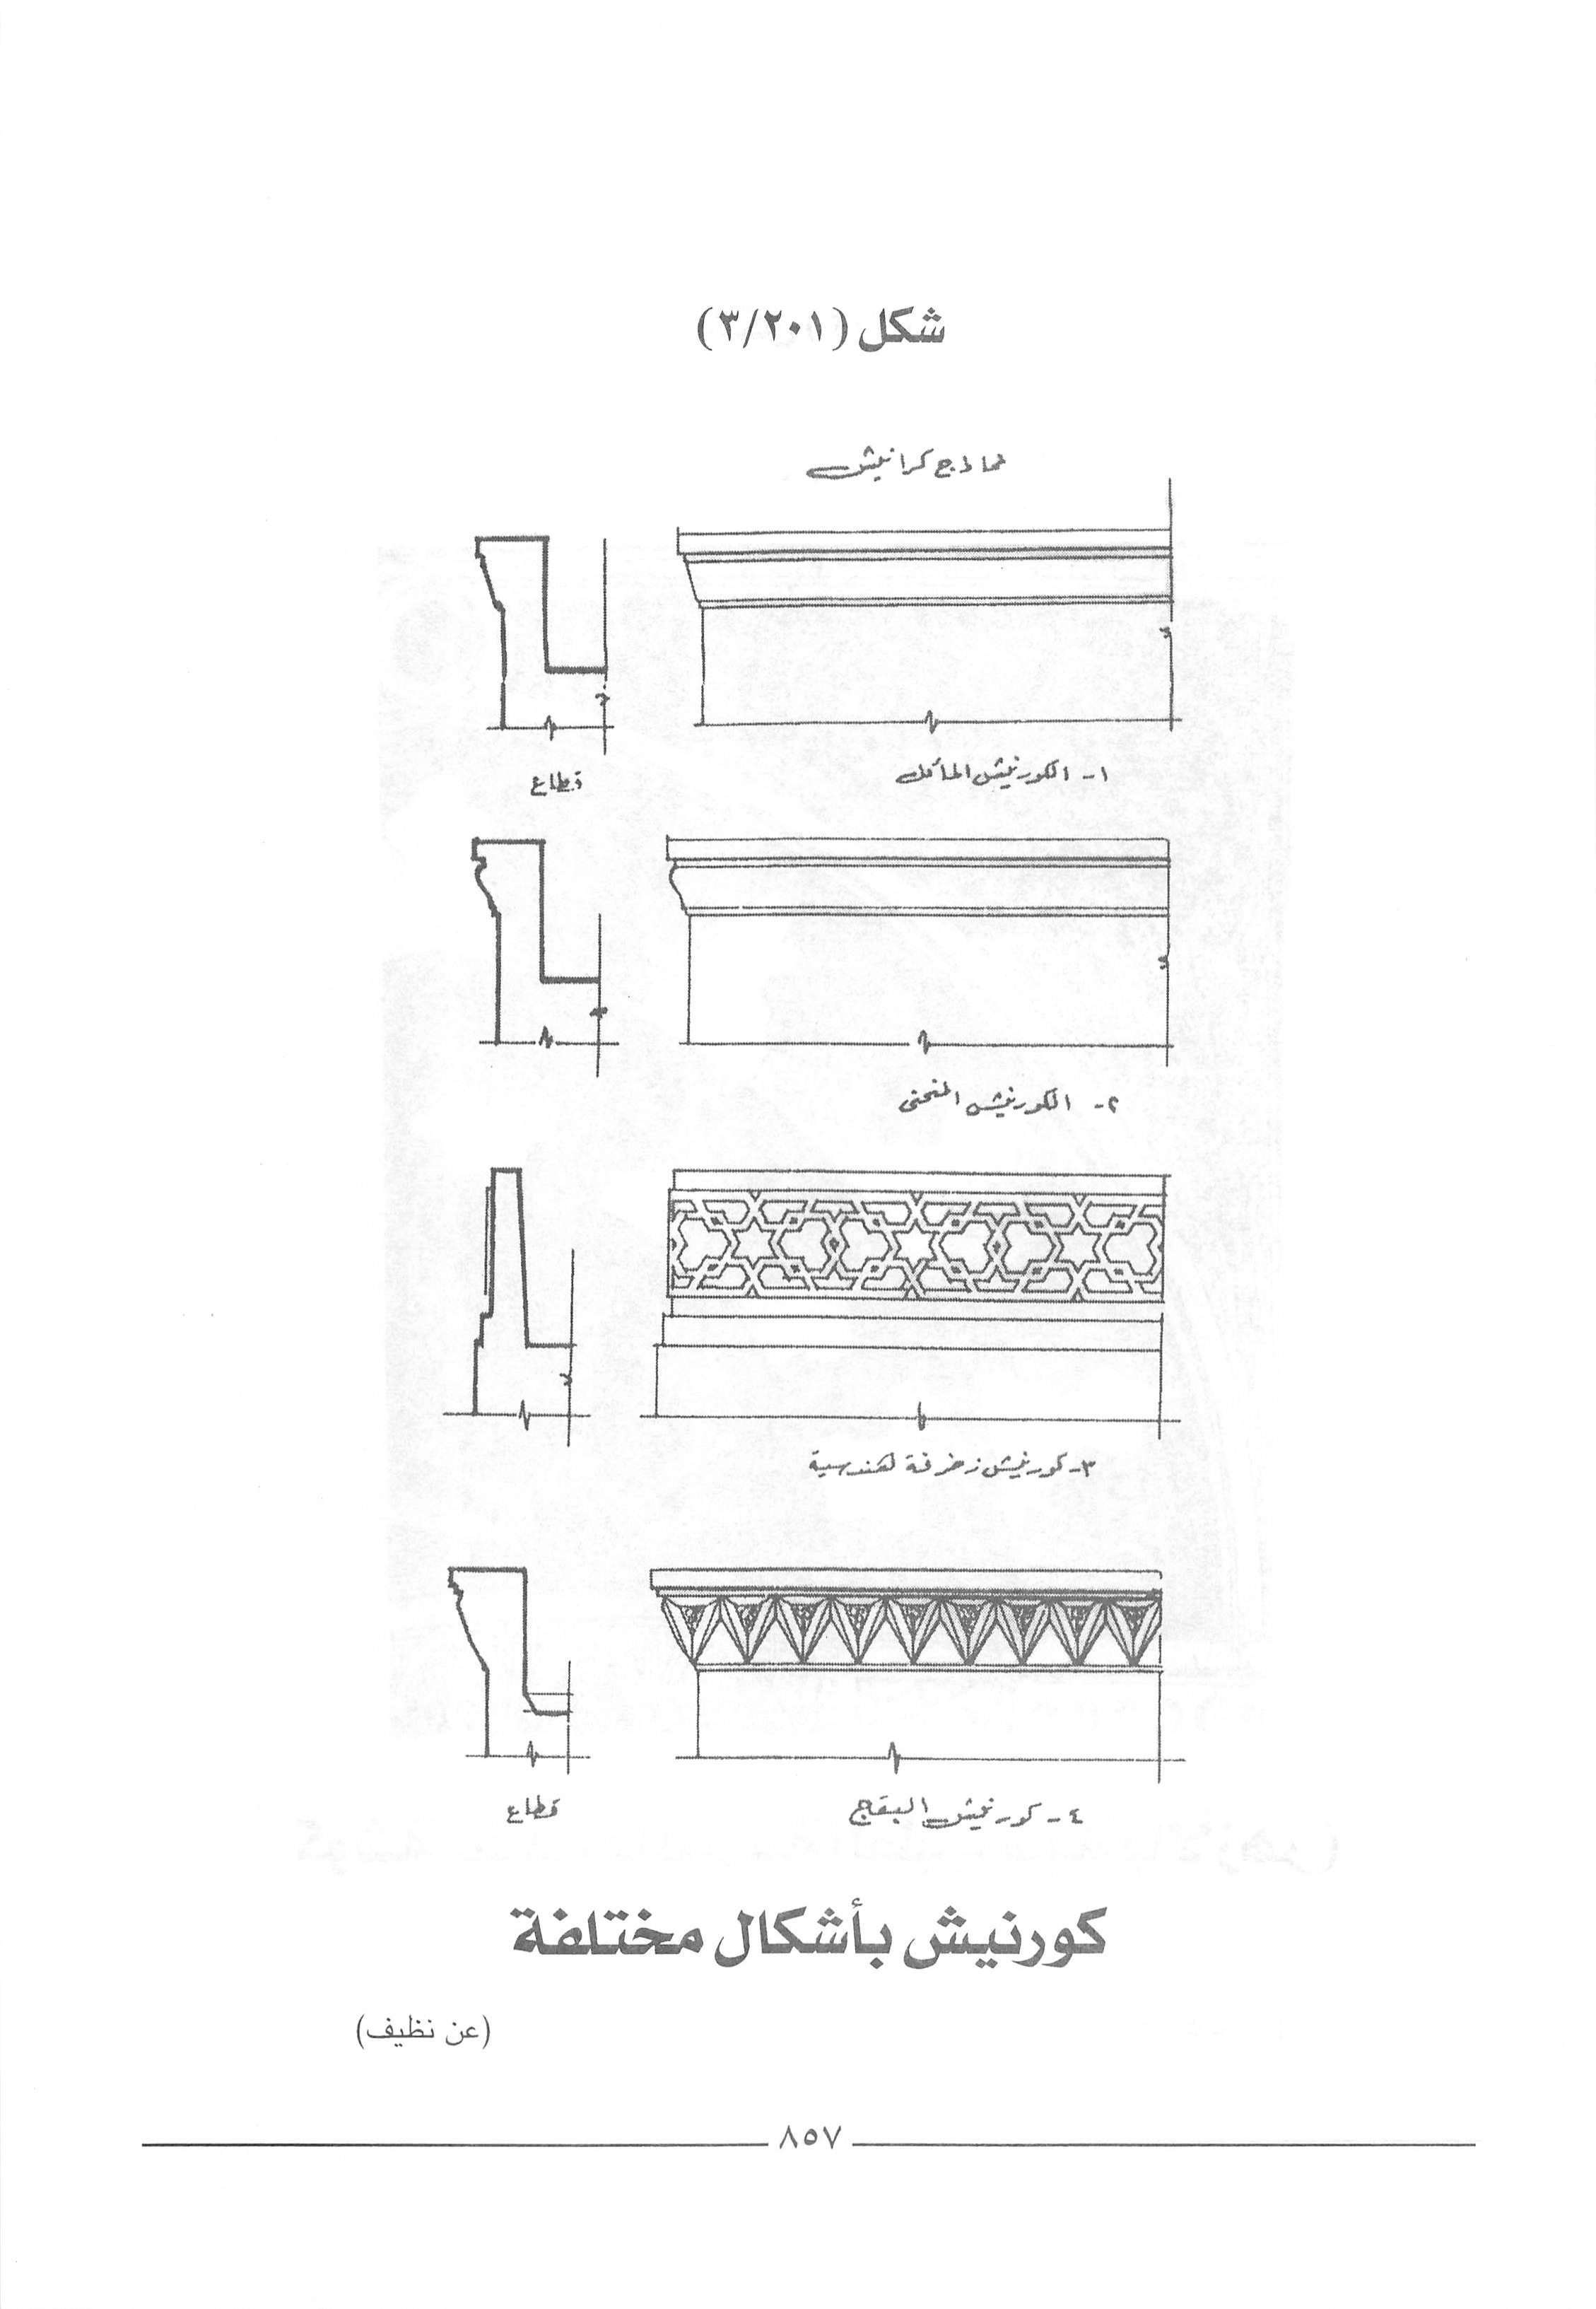 شكل (٣/٢٠١)
نماذج كرانيش
١- الكورنيش المائل
قطاع
٢- الكورنيش المنحنى
٣- كورنيش زخرفة هندسية
٤- كورنيش البقج
قطاع
كورنيش بأشكال مختلفة
(عن نظيف)
٨٥٧